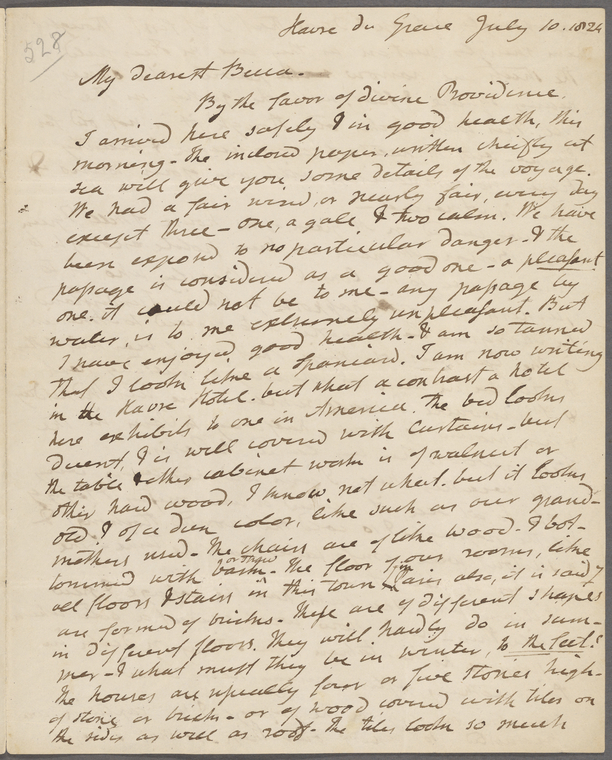 528
Havre du Grace July 10. 1824
My dearest Becca.
By the favor of divine Providence,
I arrived here safely & in good health, this
morning - The inclosed paper, written cheifly at
sea will give you some details of the voyage.
We had a fair wind, or nearly fair, every day
except three - one, a gale & two calm. We have
been exposed to no particular danger - & the
passage is considered as a good one - a pleasant
one it could not be to me - any passage by
water, is to me extremely unpleasant. But
I have enjoyed good health - & am so tanned
that I look like a Spaniard. I am now writing
in the Havre Hotel. but what a contrast a hotel
here exhibits to one in America. The bed looks
decent, & is well covered with curtains - but
the table & other cabinet work is of walnut or
other hard wood, I know not what. but it looks
old & of a dun color, like such as our grand-
mothers used - The chairs are of like wood - & bot-
tommed with or straw The floor of our rooms, like
all floors & stairs in this town & in Paris also, it is said,
are formed of bricks - These are of different shapes
in different floors. They will hardly do in sum-
mer - & what must they be in winter, to the feet!
The houses are usually four or five stories high -
of stone or bricks - or of wood covered with tiles on
the sides as well as roof - The tiles look so much